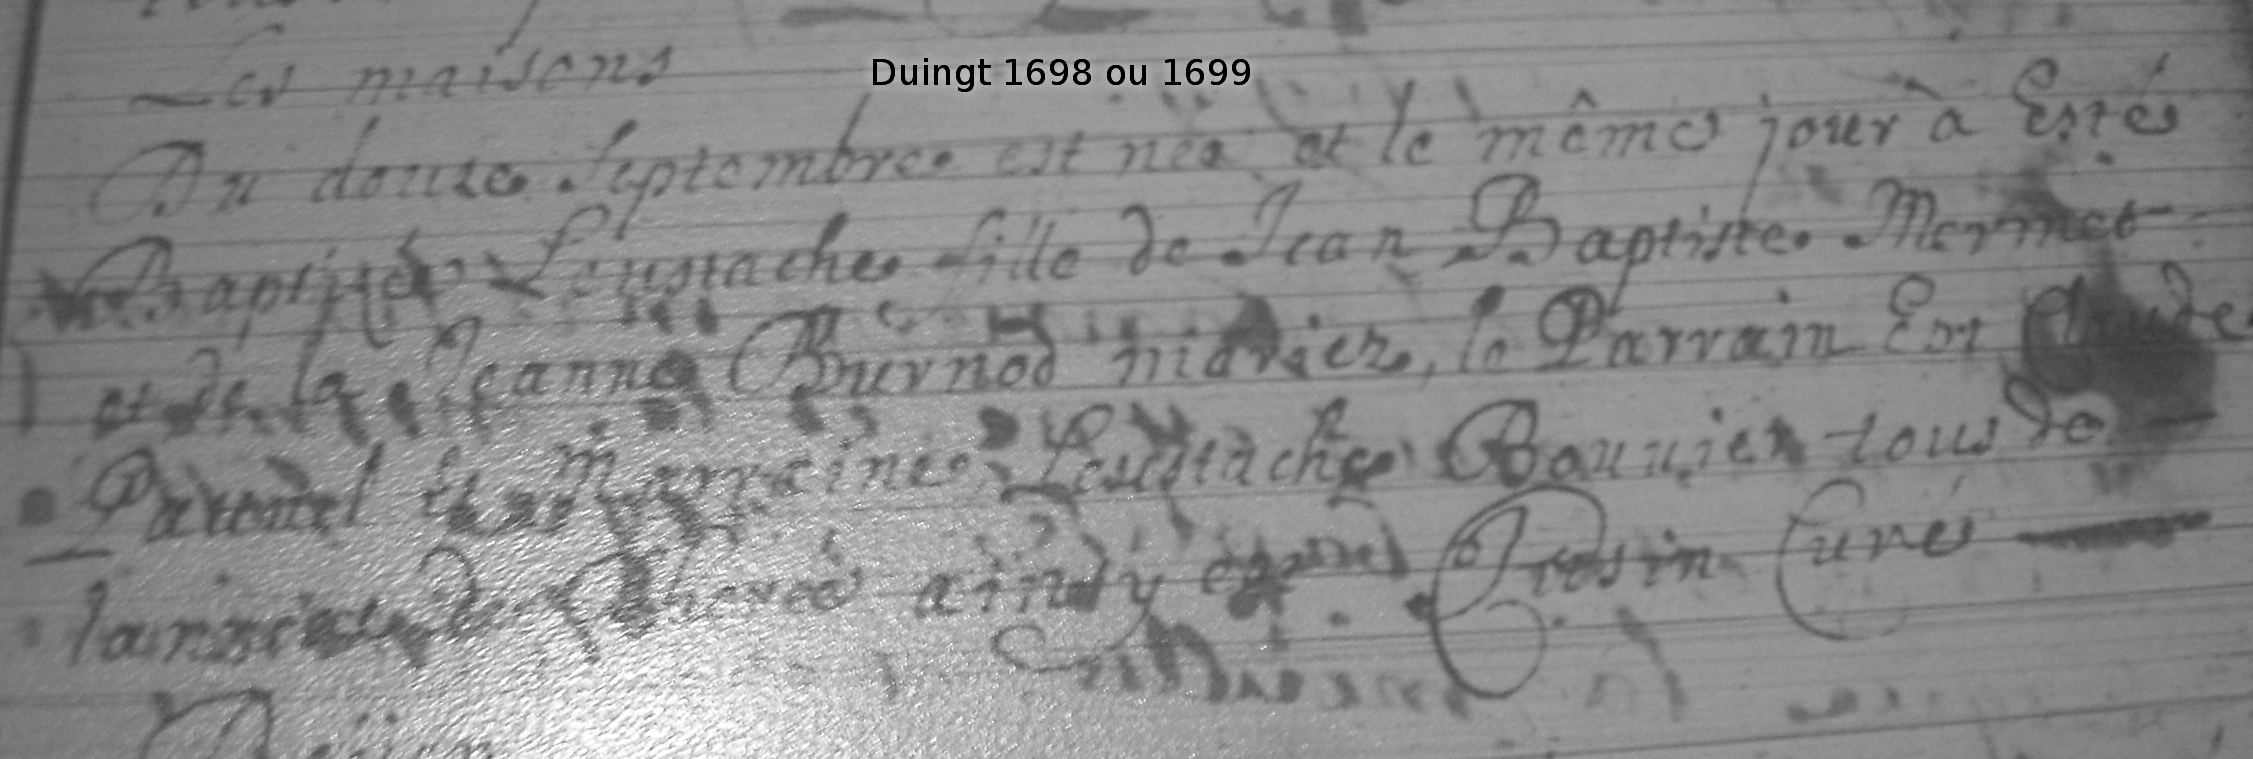 Les maisons
Duingt 1698 ou 1699
Du douze Septembre est née et le même jour à Esté
Baptisée Leustache fille de Jean Baptiste Mermet
et de la Jeanne Burnod mariez, le Parrain Est Claude
Pavenel la marraine Leustache Bouuier tous de
la de ainsy Crosin Curé